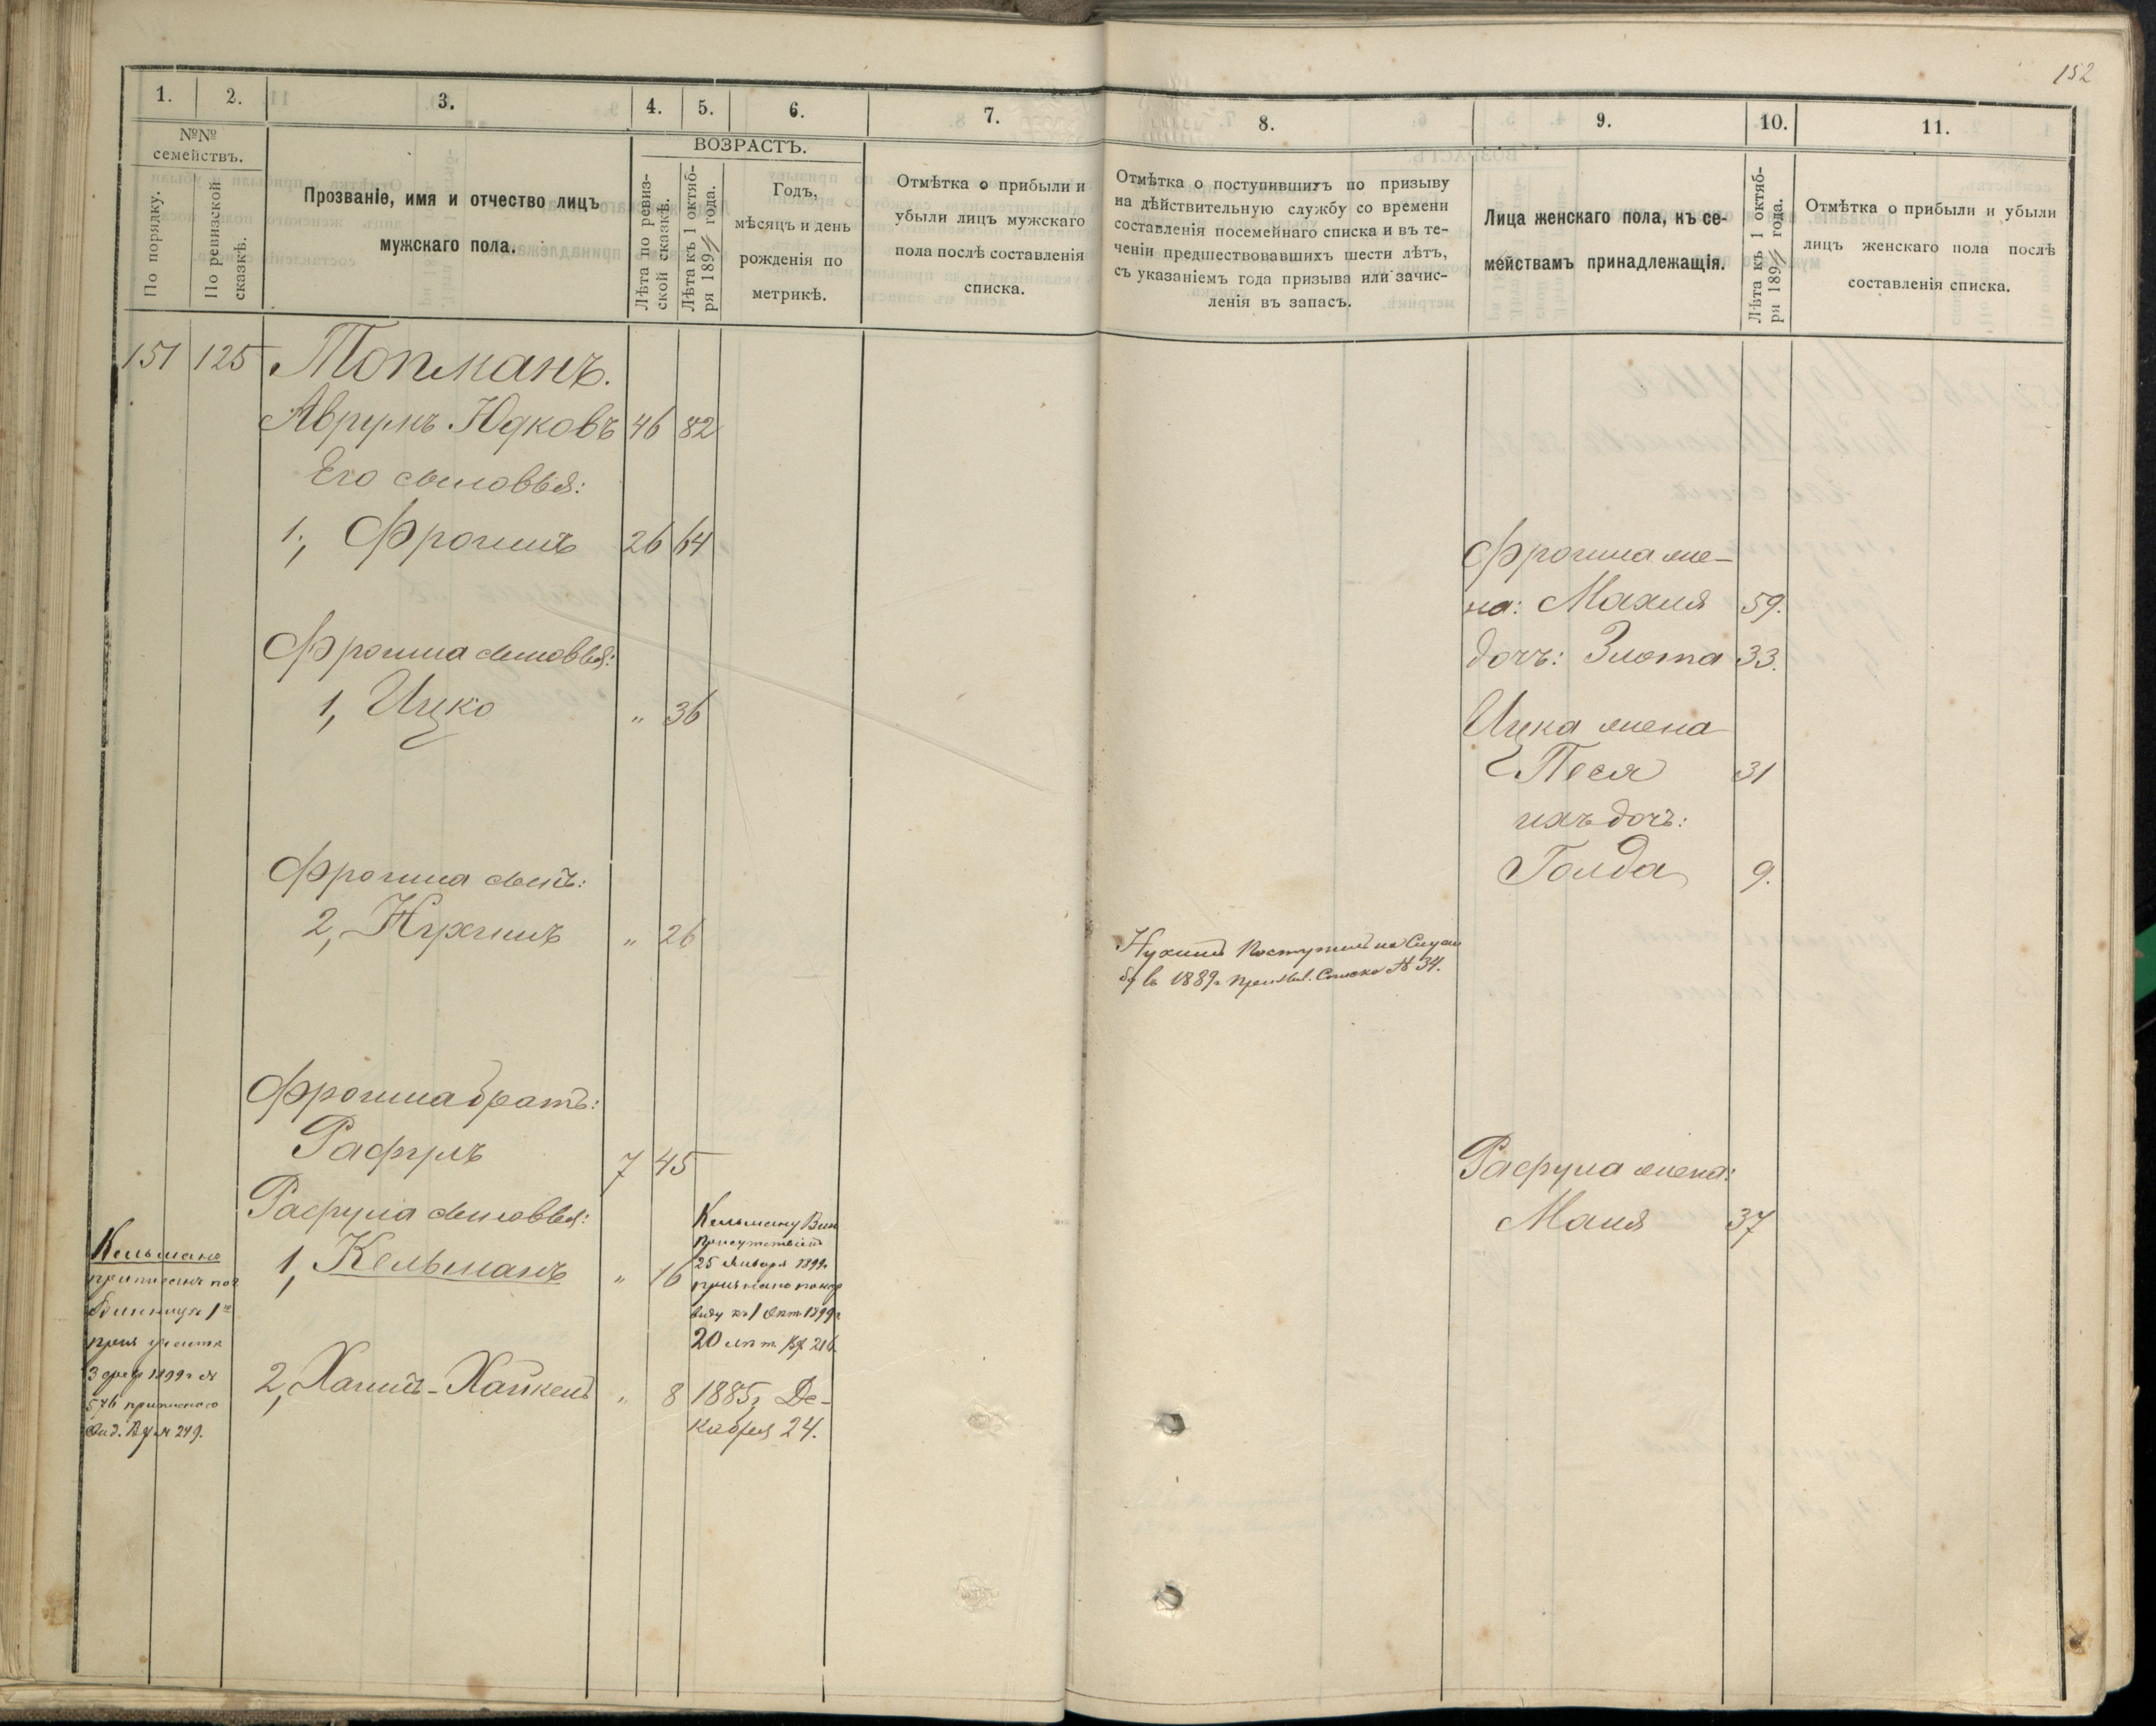 152
1. 2. 3. 4. 5. 6. 7. 8. 9. 10. 11.
№№ семействъ.
По порядку.
По ревизской сказкѣ.
Прозваніе, имя и отчество лицъ
мужскаго пола.
ВОЗРАСТЪ.
Лѣта по ревиз-
ской сказкѣ.
Лѣта къ 1 октяб-
ря 189 года.
Годъ,
мѣсяцъ и день
рожденія по
метрикѣ.
Отмѣтка о прибыли и
убыли лицъ мужскаго
пола послѣ составленія
списка.
Отмѣтка о поступившихъ по призыву
на дѣйствительную службу со времени
составленія посемейнаго списка и въ те-
ченіи предшествовавшихъ шести лѣтъ,
съ указаніемъ года призыва или зачис-
ленія въ запасъ.
Лица женскаго пола, къ се-
мействамъ принадлежащія.
Лѣта къ 1 октяб-
ря 189 года.
Отмѣтка о прибыли и убыли
лицъ женскаго пола послѣ
составленія списка.
151 125 Топманъ.
Аврумъ Юдковъ 46 82
Его сыновья:
1, Фроимъ 26 64
Фроима сыновья:
1, Ицко " 36
Фроима сынъ:
2, Нухимъ " 26
Фроима братъ:
Рафулъ 7 45
Рафула сыновья:
1, Кельманъ " 16
2, Хаимъ-Хайкель " 8 1885г Де-
кабря 24.
Кельману Вин
Присутствіемъ
25 Января 1899г
признано по нар
виду къ 1 Окт. 1899г
20 лѣт.
Кельманъ
приписанъ
3 февр 1899г №
Нухимъ Поступилъ на Служ
бу въ 1889г Призыв. Списка № 34.
Фроима же-
на: Махля 59.
дочь: Злота 33.
Ицка жена
Песя 31
ихъ дочь:
Голда 9.
Рафула жена:
Маня 37